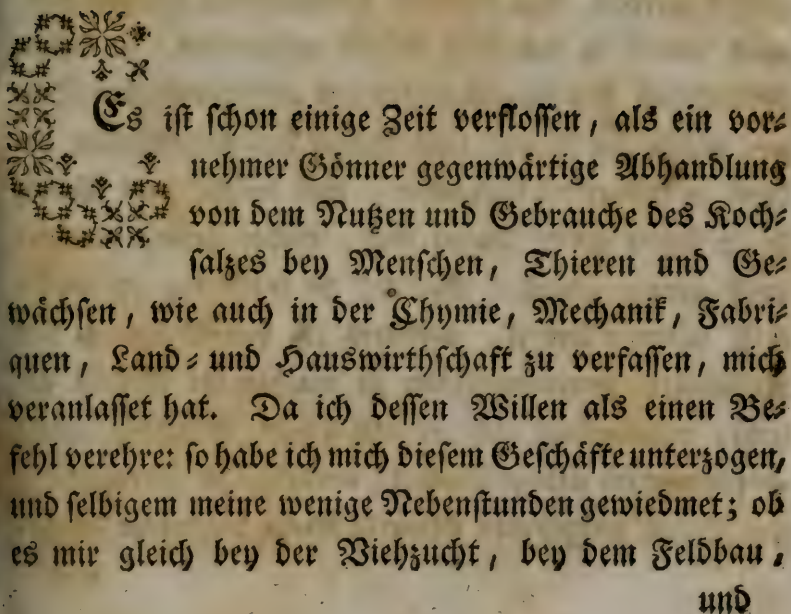 Es ist schon einige Zeit verflossen, als ein vor-
nehmer Gönner gegenwärtige Abhandlung
von dem Nutzen und Gebrauche des Koch-
salzes bey Menschen, Thieren und Ge-
wächsen, wie auch in der Chymie, Mechanik, Fabri-
quen, Land- und Hauswirthschaft zu verfassen, mich
veranlasset hat. Da ich dessen Willen als einen Be-
fehl verehre: so habe ich mich diesem Geschäfte unterzogen,
und selbigem meine wenige Nebenstunden gewiedmet; ob
es mir gleich bey der Viehzucht, bey dem Feldbau,
und